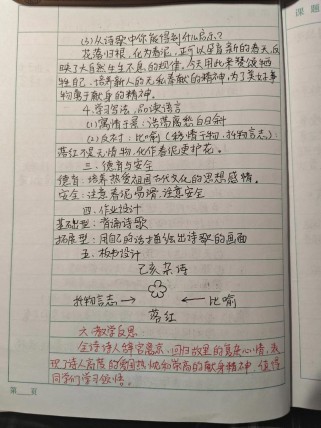 课题
(3)从诗歌中你能得到什么启示?
花落归根,化为春泥,正可以孕育新的春天,反
映了大自然生生不息的规律,今天用此来赞颂牺
牲自己,培养新人的无私奉献的精神,为了美好事
物勇于献身的精神。
4.学习写法,品读语言
(1)寓情于景:浩荡离愁白日斜
(2)反衬,比喻(移情于物,托物言志):
落红不是无情物,化作春泥更护花。
三、德育与安全
德育:培养热爱祖国古代文化的思想感情。
安全:注意春泥易滑,注意安全
四、作业设计
基础型:背诵诗歌
拓展型:用自己的话描绘出诗歌的画面
五、板书设计
己亥杂诗
托物言志 → ← 比喻
落红
六、教学反思:
全诗诗人辞官离京,回归故里的复杂心情,表
现了诗人高荡的爱国热忱和崇高的献身精神,值得
同学们学习敬悟。
第 页